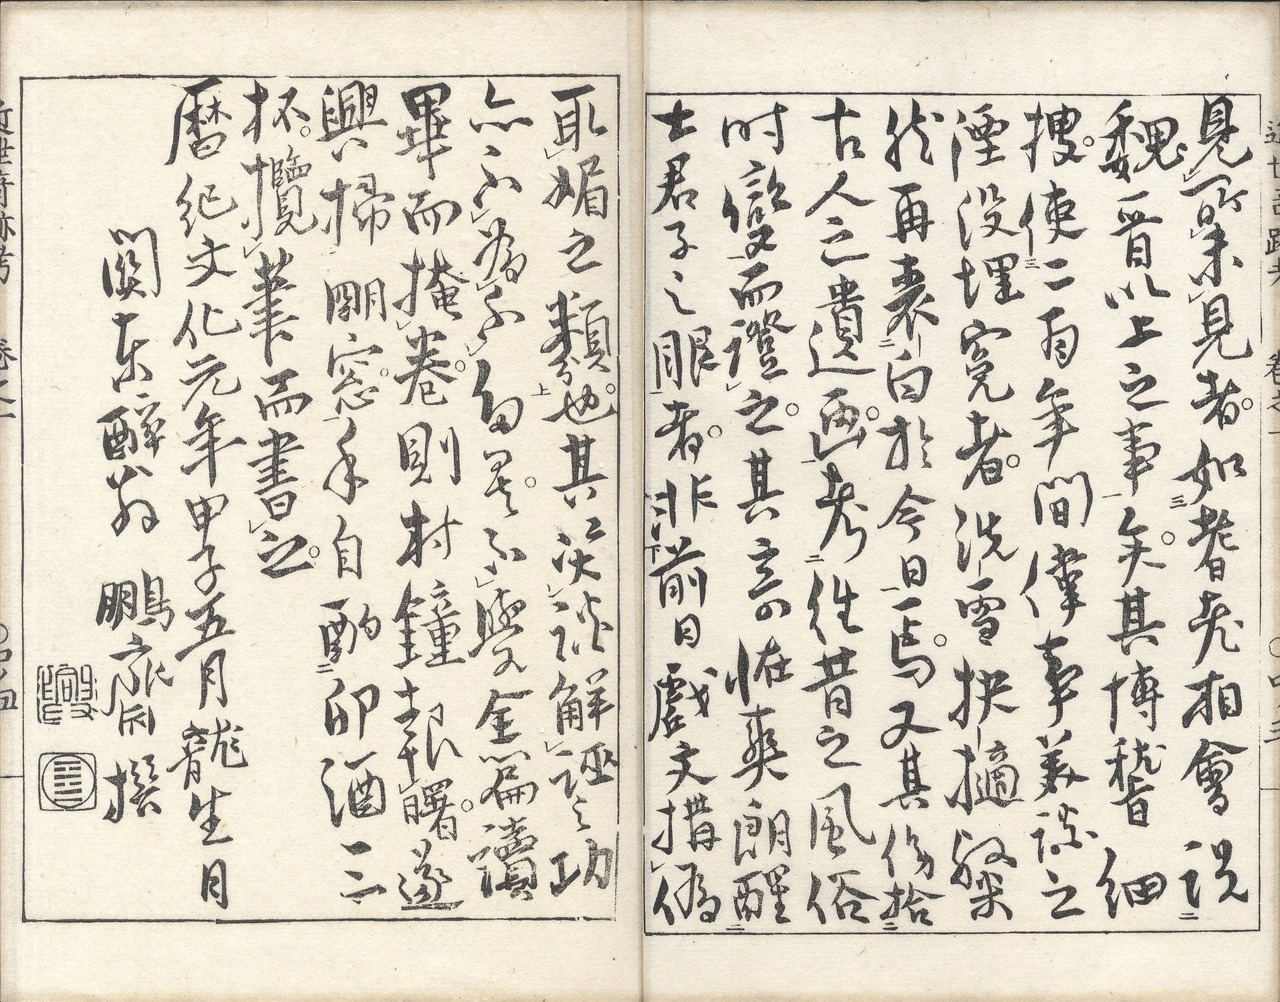 見所未見者如耆老相會説
魏晋以上之事矣其博稽細
捜使二百年間偉事美談之
湮没埋寃者洗雪抉摘粲
然再裹白於今日焉又其傍拾
古人之遺画考往昔之風俗
時變而證之其言所怪爽朗醒
士君子之眼者非前日戯文措偽
取媚之類也其決談解誣之功
亦不為不細矣不覺全篇讀
畢而掩巻則村鐘報曙遂
興掃明窓手自酌卯酒三
杯攬筆而書之
暦紀文化元年甲子五月龍生月
関東醉翁 鵬齋撰
近世奇跡考 巻之一
近世奇跡考 巻之一